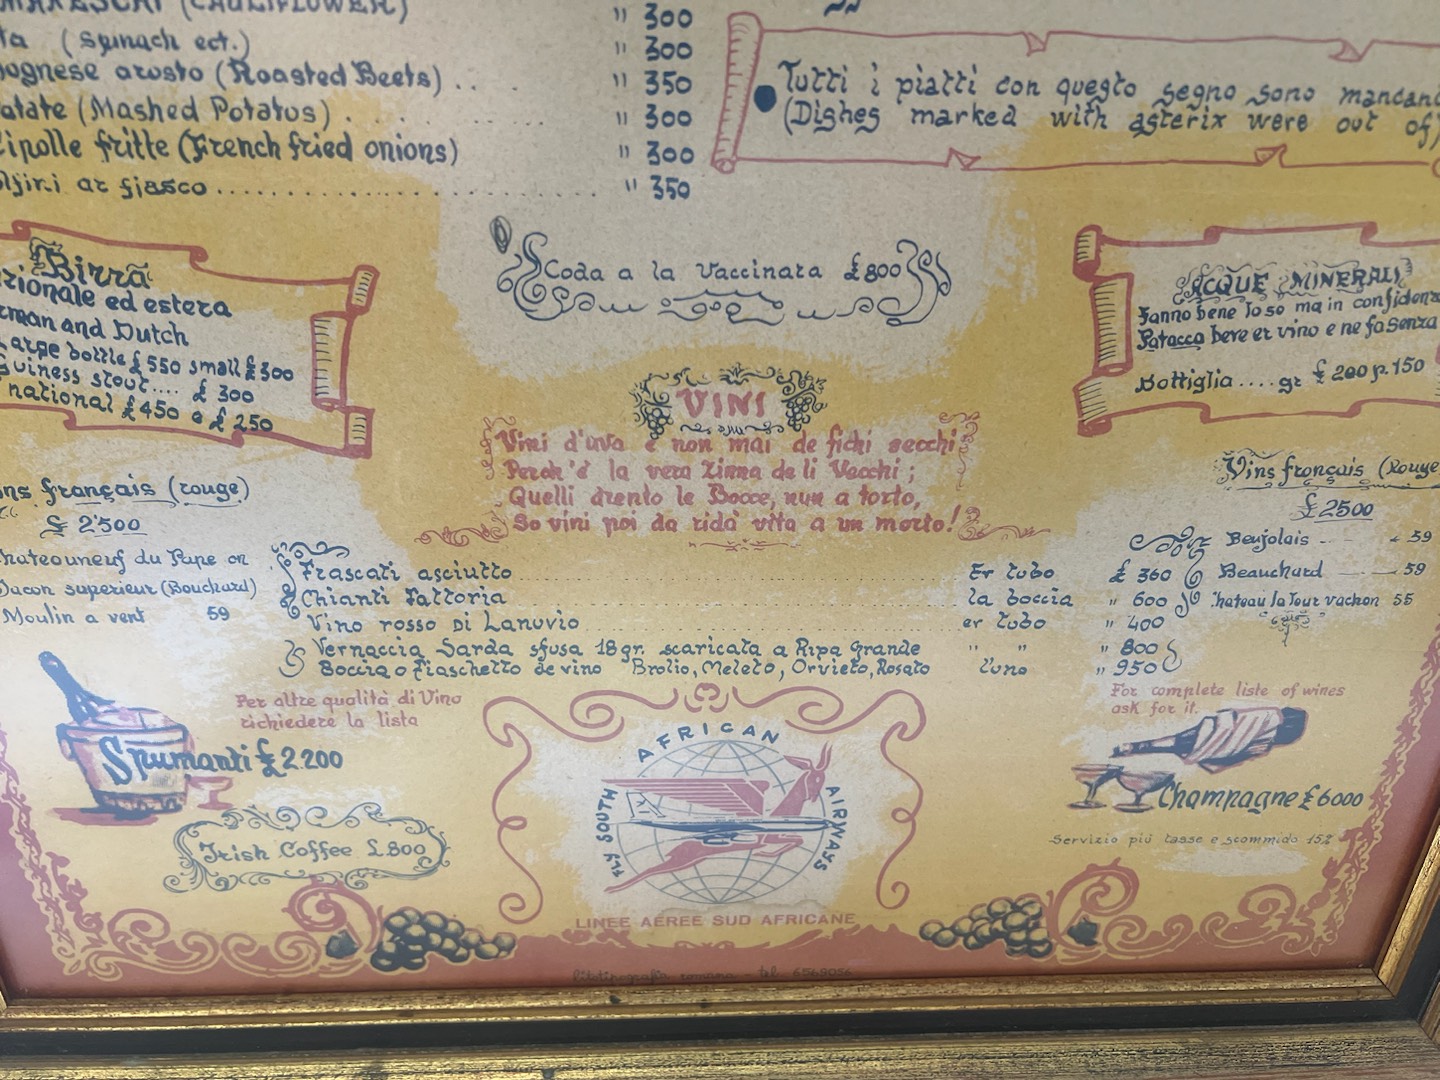 (CAULIFLOWER) " 300
(spinach ect.) 300
arosto (Roasted Beets) .. " 350
(Mashed Potatus) . . . . . " 300
fritte (French fried onions) " 300
ar fiasco .............................. " 350
Tutti i piatti con questo segno sono
(Dishes marked with asterix were out of)
Birra
ed estera
and Dutch
bottle £ 550 small £ 300
stout.... £ 300
£ 450 e £ 250
Coda a la Vaccinara £ 800
ACQUE MINERALI
Fanno bene lo so ma in
Patacca bere er vino e ne fa senza
Bottiglia .... gr £ 200 p. 150
VINI
Vini d'uva e non mai de fichi secchi
Perch'è la vera Zinna de li Vecchi ;
Quelli drento le Bocce, nun a torto,
So vini poi da ridà vita a un morto!
français (rouge)
£ 2'500
du Pape
superieur (Bouchard)
Moulin a vent 59
Vins français (Rouge
£ 2500
Beujolais - - 59
Beauchard 59
la Tour vachon 55
Frascati asciutto Er tubo £ 360
Chianti Fattoria la boccia " 600
Vino rosso Di Lanuvio er tubo " 400
Vernaccia Sarda sfusa 18 gr. scaricata a Ripa Grande " " " 800
Boccia o Fiaschetto de vino Brolio, Meleto, Orvieto, Rosato l'uno " 950
Per altre qualità di Vino
richiedere la lista
Spumanti £ 2.200
For complete liste of wines
ask for it.
Champagne £ 6000
Irish Coffee £.800
Servizio più tasse e scommido 15%
FLY SOUTH AFRICAN AIRWAYS
LINEE AEREE SUD AFRICANE
romana - tel. 6569056